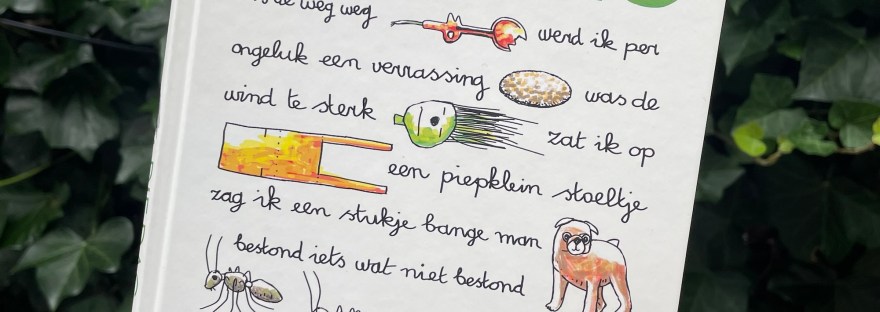 weg weg
werd ik per
ongeluk een verrassing
was de
wind te sterk
zat ik op
een piepklein stoeltje
zag ik een stukje bange man
bestond iets wat niet bestond